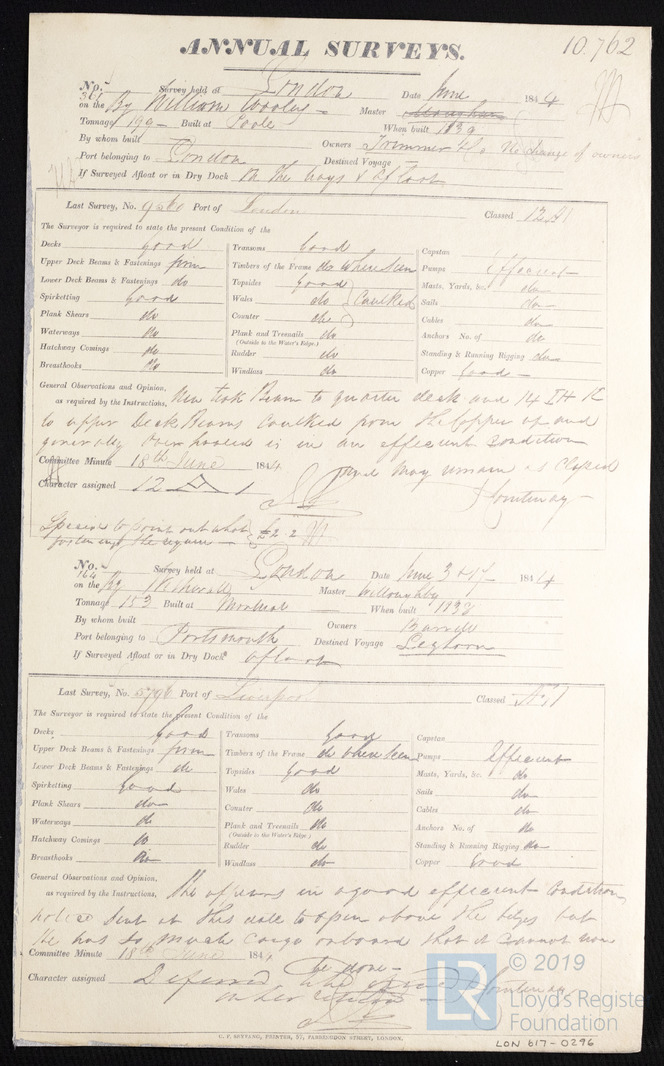 ANNUAL SURVEYS. 10.762
No. 361 Survey held at London Date June 1844
on the Bg William Wooley Master
Tonnage 199 Built at Poole When built 1839
By whom built Owners Trimmer & Co No change of owners
Port belonging to London Destined Voyage
If Surveyed Afloat or in Dry Dock On the Ways & afloat
Last Survey, No. Port of London Classed 12 A1
The Surveyor is required to state the present Condition of the
Decks good Transoms Good Capstan
Upper Deck Beams & Fastenings firm Timbers of the Frame do where seen Pumps Efficient
Lower Deck Beams & Fastenings do Topsides Good Masts, Yards, &c. do
Spirketting Good Wales do Caulked Sails do
Plank Shears do Counter do Cables do
Waterways do Plank and Treenails do Anchors No. of do
(Outside to the Water's Edge.)
Hatchway Comings do Rudder do Standing & Running Rigging do
Breasthooks do Windlass do Copper Good
General Observations and Opinion, New Teak Beam to quarter deck and 14
as required by the Instructions, to upper Deck Beams Caulked from the Copper up and
generally overhauled is in an efficient condition
Committee Minute 18th June 1844 and may remain as Classed
Character assigned 12 A 1 Courtenay
Special to point out what £2.2
fastenings she requires
No. 164 Survey held at London Date June 3 & 17 1844
on the Bg Master Willoughby
Tonnage 153 Built at Montreal When built 1832
By whom built Owners
Port belonging to Portsmouth Destined Voyage Leghorn
If Surveyed Afloat or in Dry Dock afloat
Last Survey, No. Port of Liverpool Classed
The Surveyor is required to state the present Condition of the
Decks Good Transoms Good Capstan
Upper Deck Beams & Fastenings firm Timbers of the Frame do where seen Pumps Efficient
Lower Deck Beams & Fastenings do Topsides Good Masts, Yards, &c. do
Spirketting Good Wales do Sails do
Plank Shears do Counter do Cables do
Waterways do Plank and Treenails do Anchors No. of do
(Outside to the Water's Edge.)
Hatchway Comings do Rudder do Standing & Running Rigging do
Breasthooks do Windlass do Copper Good
General Observations and Opinion,
as required by the Instructions, appears in a good efficient condition
notice sent at this date to open above the but
she has so much cargo onboard that it cannot now
Committee Minute 18th June 1844 be done
Character assigned Deferred Courtenay
on her return
C. F. SEYFANG, PRINTER, 57, FARRINGDON STREET, LONDON.
© 2019
LR Lloyd's Register
Foundation
LON 617-0296